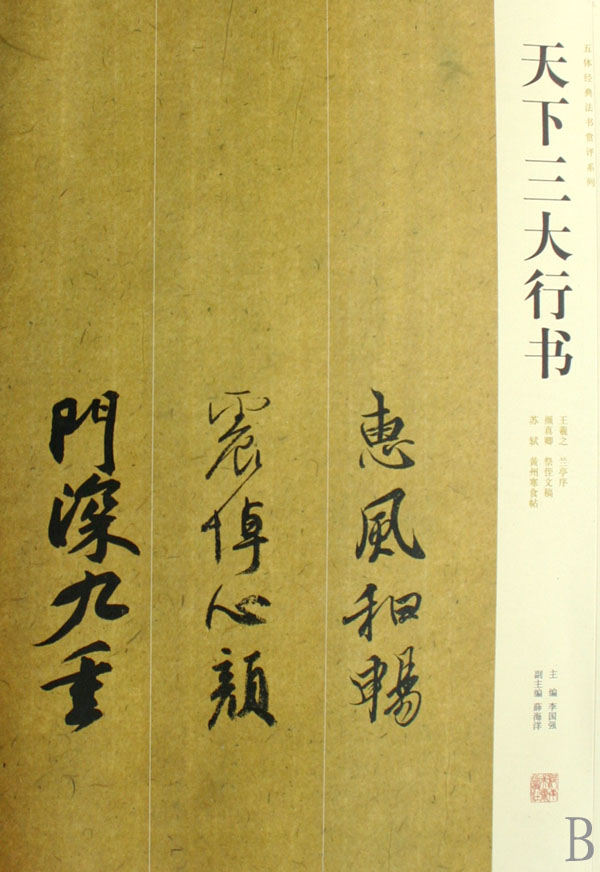 五体经典法书赏评系列
天下三大行书
王羲之 兰亭序
颜真卿 祭侄文稿
苏轼 黄州寒食帖
主编 李国强
副主编 薛海洋
惠風和暢
震悼心顔
門深九重
B